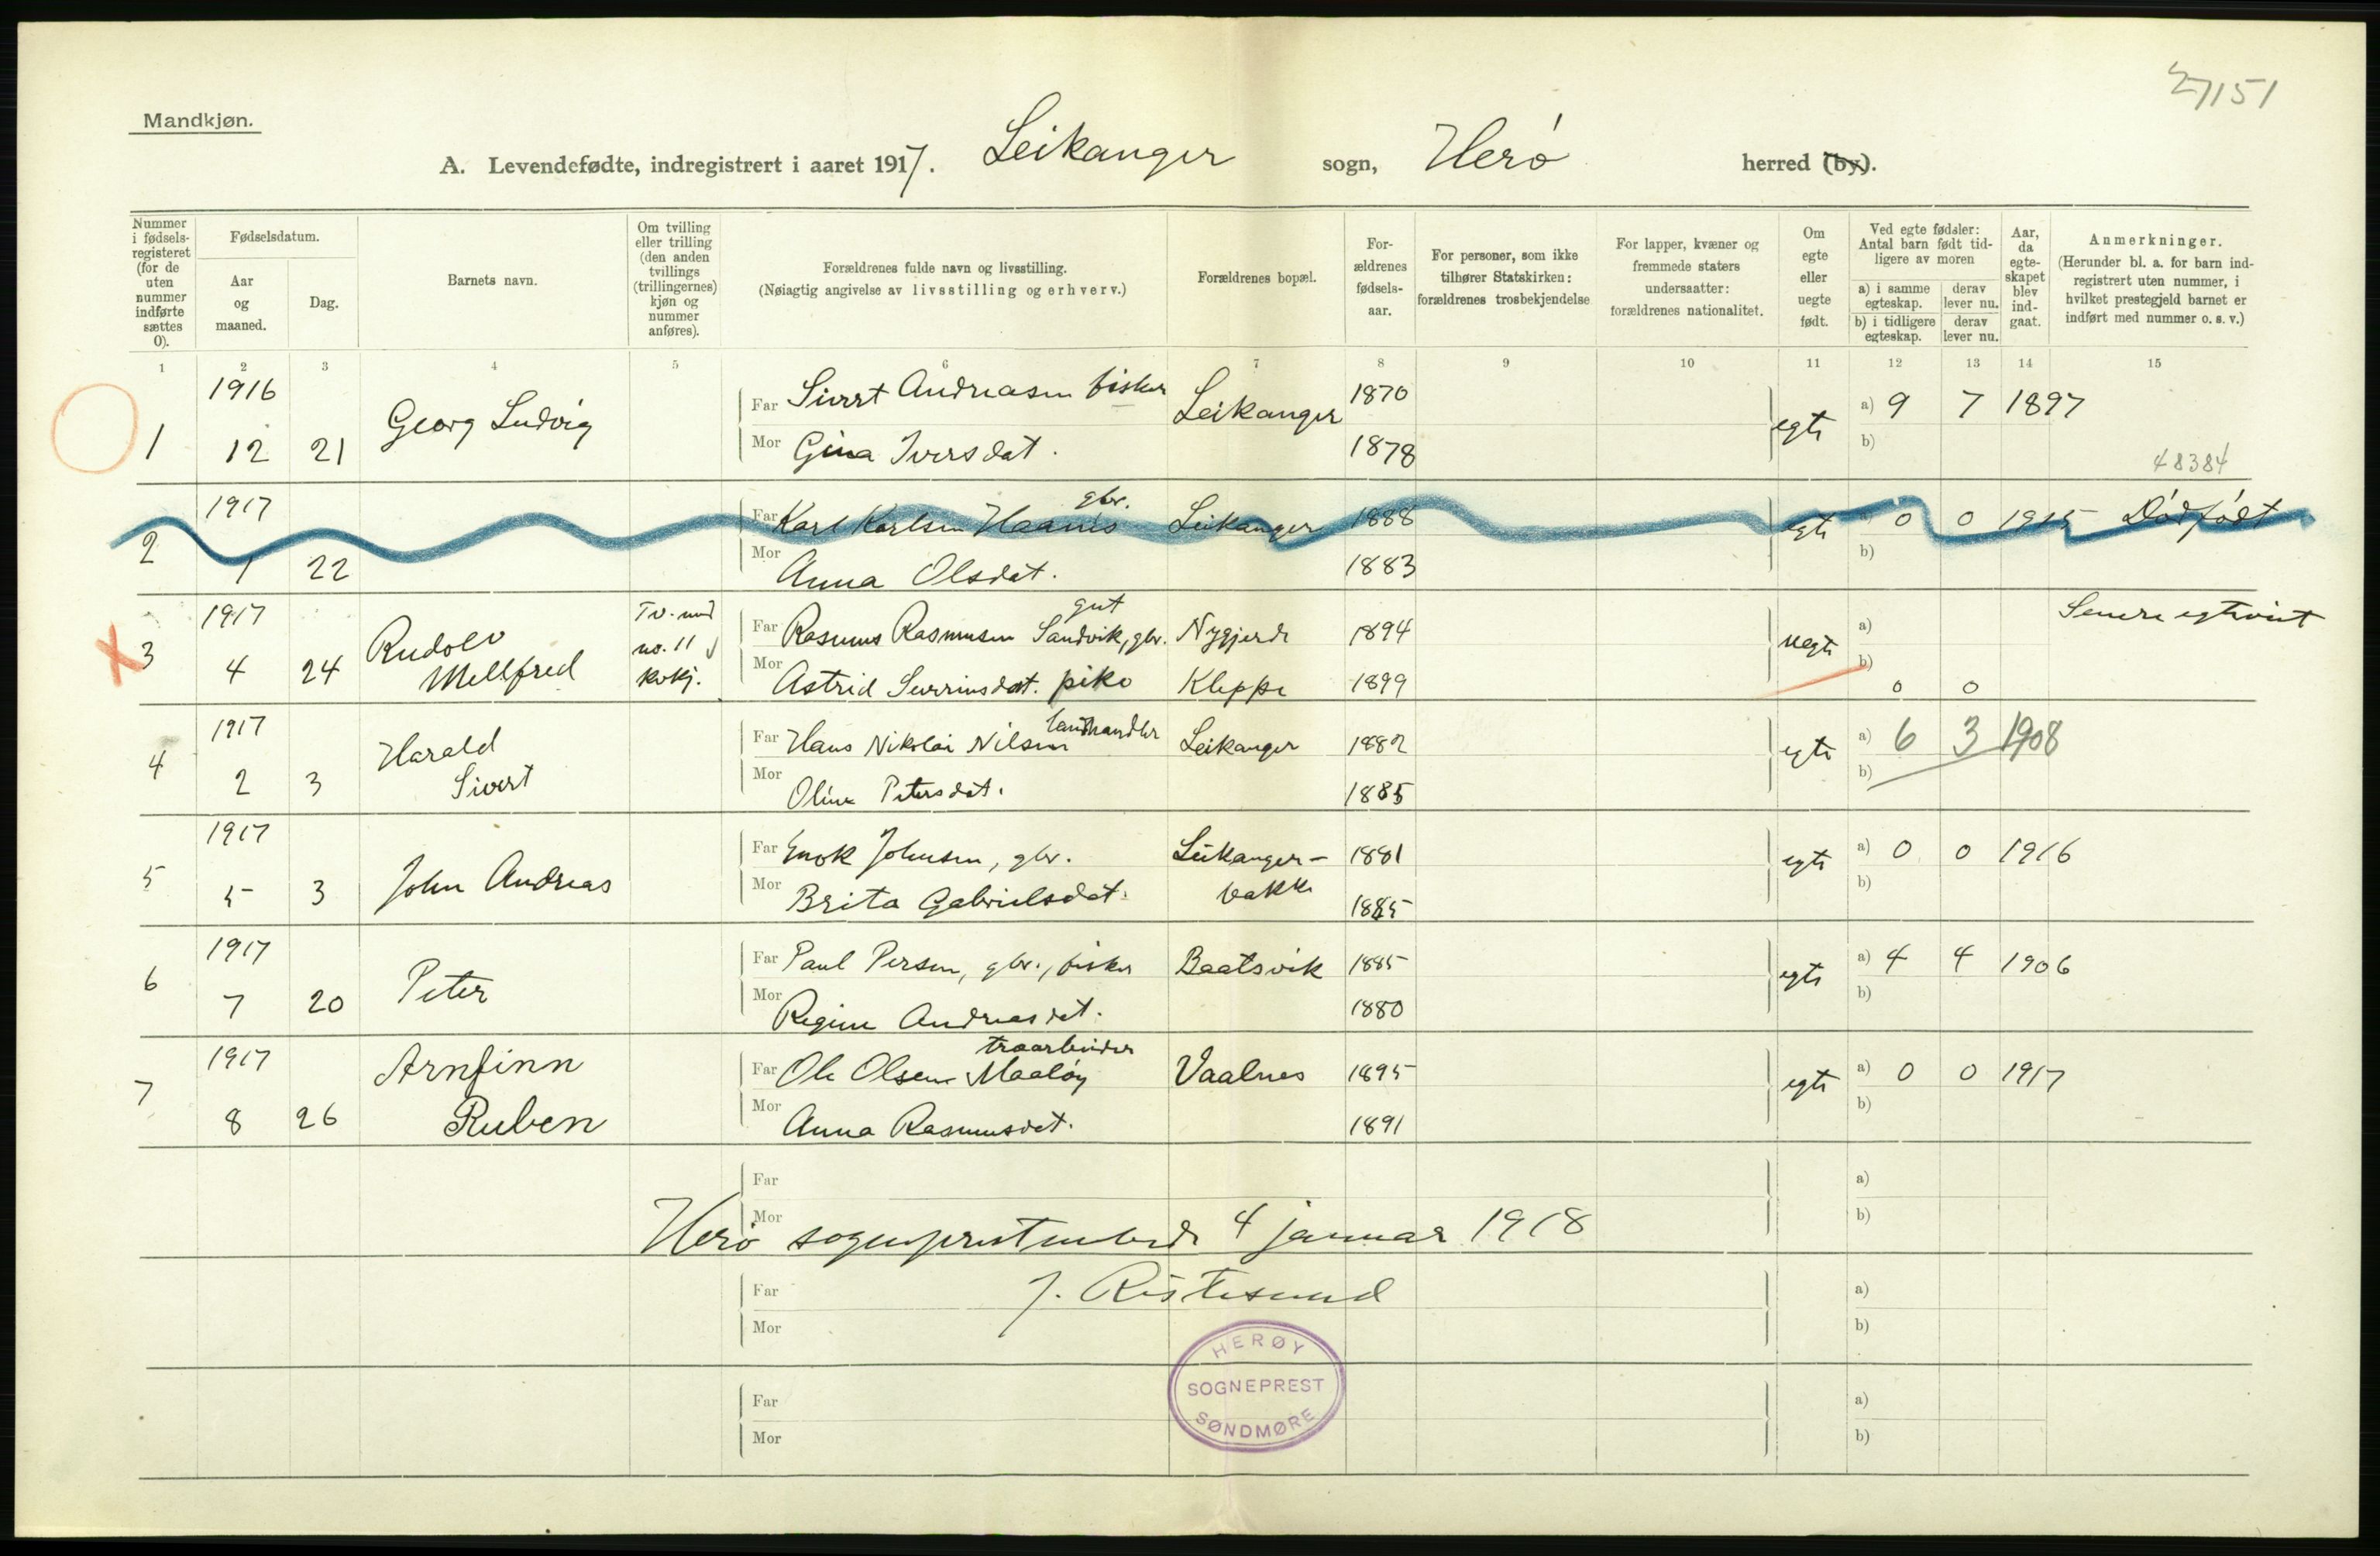 27151
Mandkjøn.
A. Levendefødte, indregistrert i aaret 1917. Leikanger sogn, Herø herred (by).
Nummer i fødsels-registeret (for de uten nummer indførte sættes 0).
Fødselsdatum.
Aar og maaned.
Dag.
Barnets navn.
Om tvilling eller trilling (den anden tvillings (trillingernes) kjøn og nummer anføres).
Forældrenes fulde navn og livsstilling.
(Nøiagtig angivelse av livsstilling og erhverv.)
Forældrenes bopæl.
For-ældrenes fødsels-aar.
For personer, som ikke tilhører Statskirken: forældrenes trosbekjendelse
For lapper, kvæner og fremmede staters undersaatter: forældrenes nationalitet.
Om egte eller uegte født.
Ved egte fødsler: Antal barn født tid-ligere av moren
a) i samme egteskap. derav lever nu.
b) i tidligere egteskap. derav lever nu.
Aar, da egte-skapet blev ind-gaat.
Anmerkninger.
(Herunder bl. a. for barn ind-registrert uten nummer, i hvilket prestegjeld barnet er indført med nummer o. s. v.)
1 2 3 4 5 6 7 8 9 10 11 12 13 14 15
1916 Far Sivert Andreasen fisker Leikanger 1870 egte a) 9 7 1897
1 12 21 Georg Ludvig Mor Gina Iversdat. 1878 b)
48384
1917 gbr.
2 Far Karl Karlsen Haanes Leikanger 1888 egte a) 0 0 1915 Dødfødt
1 22 Mor Anna Olsdat. 1883 b)
1917 Tv. med gut Senere egtviet
3 Rudolv no. 11 Far Rasmus Rasmusen Sandvik, gbr. Nygjerde 1894 uegte a)
4 24 Mellfred kvkj. Mor Astrid Severinsdat. pike Kleppe 1899 b) 0 0
1917 landhandler
4 Harald Far Hans Nikolai Nilsen Leikanger 1882 egte a) 6 3 1908
2 3 Sivert Mor Oline Petersdat. 1885 b)
1917 Far Enok Johnsen, gbr. Leikanger- 1881 egte a) 0 0 1916
5 5 3 John Andreas Mor Brita Gabrielsdat. bakke 1885 b)
1917 Far Paul Persen, gbr., fisker Baatsvik 1885 egte a) 4 4 1906
6 7 20 Peter Mor Regine Andreasdat. 1880 b)
1917 Arnfinn træarbeider
7 Far Ole Olsen Maaløy Vaalnes 1895 egte a) 0 0 1917
8 26 Ruben Mor Anna Rasmusdat. 1891 b)
Far a)
Mor b)
Herø sogneprestembede 4 januar 1918
Far a)
J. Ristesund
Mor b)
HERØY
SOGNEPREST
SØNDMØRE
Far a)
Mor b)